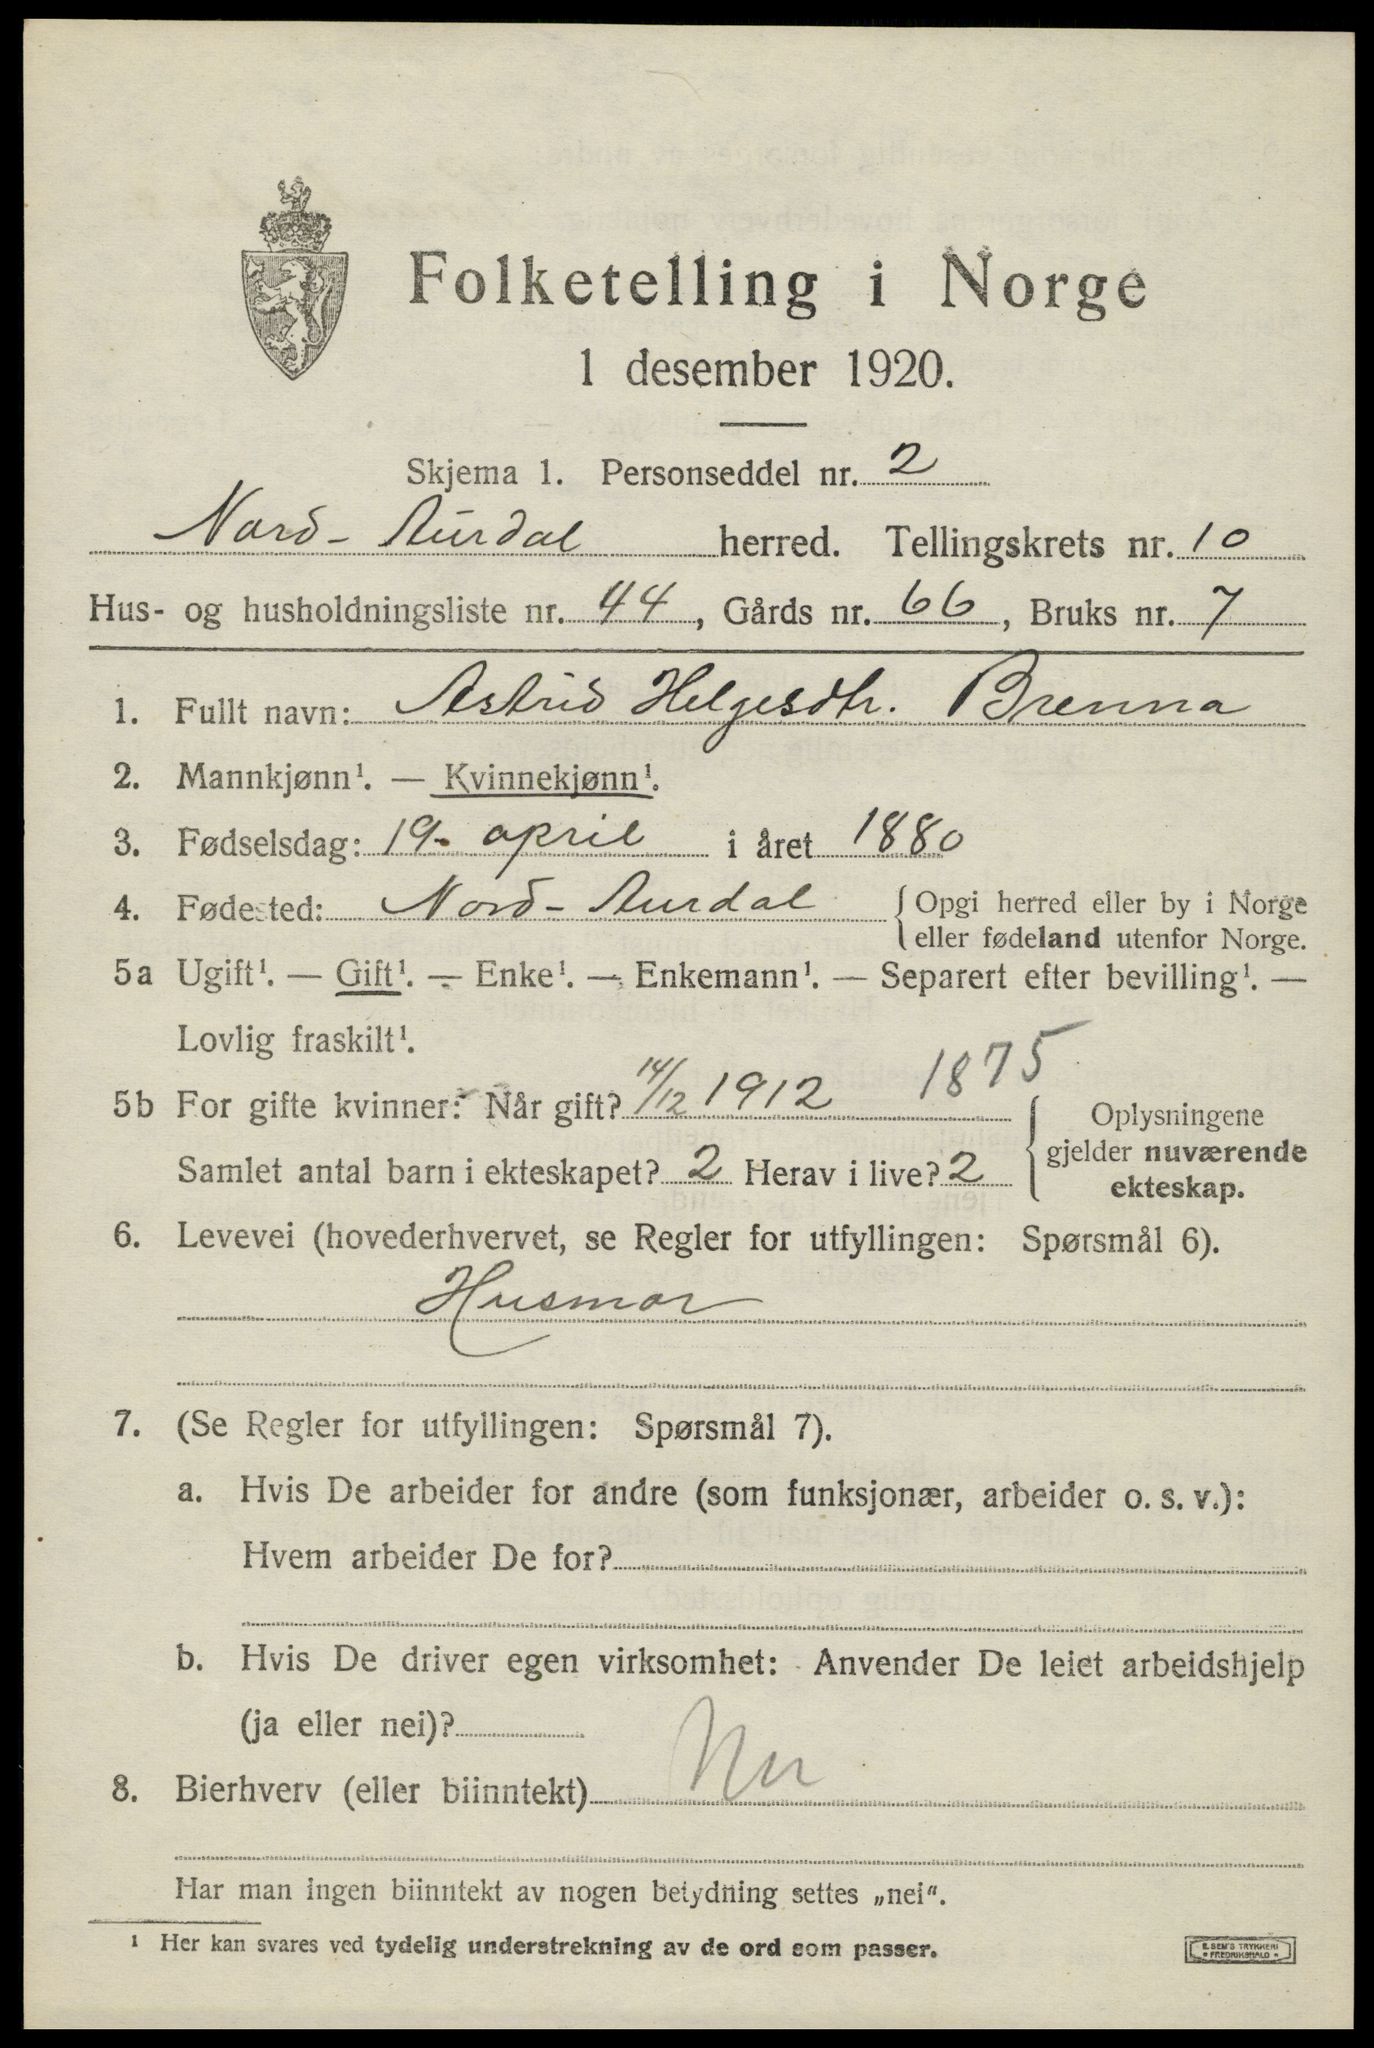 Folketelling i Norge
1 desember 1920.
Skjema 1. Personseddel nr. 2
Nord-Aurdal herred. Tellingskrets nr. 10
Hus- og husholdningsliste nr. 44, Gårds nr. 66, Bruks nr. 7
1. Fullt navn: Astrid Helgesdtr. Brenna
2. Mannkjønn¹. — Kvinnekjønn¹.
3. Fødselsdag: 19. april i året 1880
4. Fødested: Nord-Aurdal { Opgi herred eller by i Norge
eller fødeland utenfor Norge.
5a Ugift¹. — Gift¹. — Enke¹. — Enkemann¹. — Separert efter bevilling¹. —
Lovlig fraskilt¹.
1875
5b For gifte kvinner: Når gift? 14/12 1912
Samlet antal barn i ekteskapet? 2 Herav i live? 2
{ Oplysningene
gjelder nuværende
ekteskap.
6. Levevei (hovederhvervet, se Regler for utfyllingen: Spørsmål 6).
Husmor
7. (Se Regler for utfyllingen: Spørsmål 7).
a. Hvis De arbeider for andre (som funksjonær, arbeider o. s. v.):
Hvem arbeider De for?
b. Hvis De driver egen virksomhet: Anvender De leiet arbeidshjelp
(ja eller nei)?
8. Bierhverv (eller biinntekt) Nei
Har man ingen biinntekt av nogen betydning settes „nei".
¹ Her kan svares ved tydelig understrekning av de ord som passer.
E. SEM'S TRYKKERI
FREDRIKSHALD